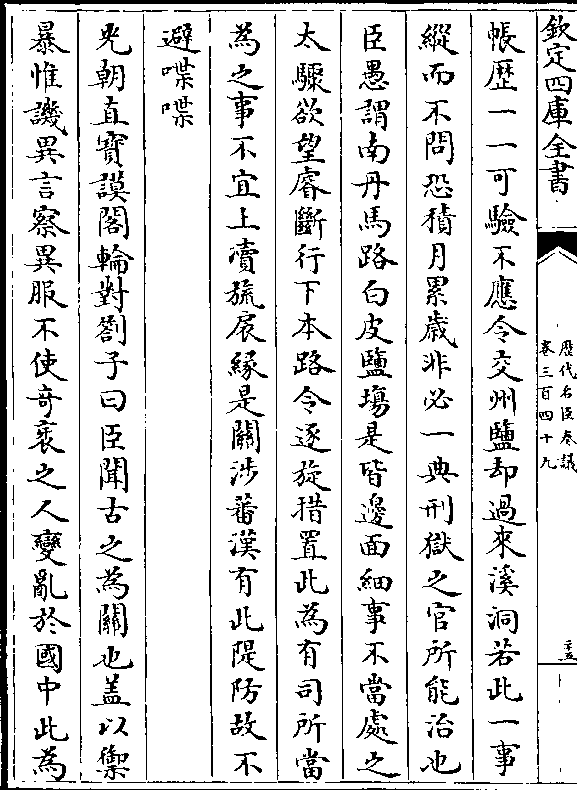 欽定四庫全書
歷代名臣奏議
卷三百四十九
三五
帳歷一一可驗不應令交州鹽却過來溪洞若此一事
縱而不問恐積月累歲非必一典刑獄之官所能治也
臣愚謂南丹馬路白皮鹽場是皆邊面細事不當處之
太驟欲望睿斷行下本路令逐旋措置此為有司所當
為之事不宜上瀆旒扆緣是關涉蕃漢有此隄防故不
避喋喋
光朝直寶謨閣輪對劄子曰臣聞古之為關也蓋以禦
暴惟譏異言察異服不使奇衺之人變亂於國中此為